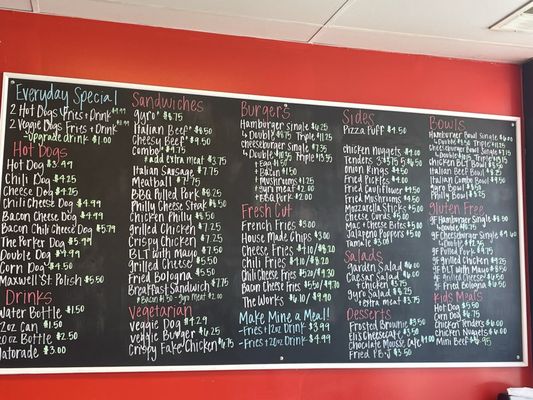 Everyday Special
2 Hot Dogs Fries + Drink
2 Veggie Dogs Fries + Drink
-upgrade drink $1.00
Hot Dogs
Hot Dog $3.49
Chili Dog $4.25
Cheese Dog $4.25
Chili Cheese Dog $4.99
Bacon Cheese Dog $4.99
Bacon Chili Cheese Dog $5.79
The Porker Dog $5.99
Double Dog $4.99
Corn Dog $4.50
Maxwell St. Polish $5.50
Drinks
Water Bottle $1.50
12oz Can $1.50
20oz Bottle $2.50
Gatorade $3.00
Sandwiches
gyro $8.75
Italian Beef $8.50
Cheesy Beef $9.50
Combo $9.75
+ add extra meat $3.75
Italian Sausage $7.75
Meatball $7.75
BBQ Pulled Pork $8.25
Philly Cheese Steak $8.50
Chicken Philly $8.50
grilled Chicken $7.25
Crispy Chicken $7.25
BLT w/ Mayo $7.50
grilled Cheese $5.50
Fried Bologna $5.50
Breakfast Sandwich $7.75
+ Bacon $1.50 - Gyro Meat $2.00
vegetarian
veggie Dog $4.29
veggie Burger $6.25
Crispy Fake Chicken $6.75
Burgers
Hamburger single $6.25
Double $8.75 Triple $11.25
cheeseburger single $7.35
Double $10.35 Triple $13.35
+ Egg $1.50
+ Bacon $1.50
+ Mushroom $1.25
+ gyro meat $2.00
+ BBQ Pork $2.00
Fresh Cut
French Fries $3.00
House Made Chips $3.00
Cheese Fries
Chili Fries
Chili Cheese Fries
Bacon Cheese Fries
The Works
Make Mine a Meal!
-Fries + 12oz Drink $3.99
-Fries + 20oz Drink $4.99
Sides
Pizza Puff $4.50
chicken nuggets $4.00
Tenders
Onion Rings $4.50
Fried Pickles $4.00
Fried Cauliflower $4.50
Fried Mushrooms $4.50
Mozzarella Sticks $5.00
Cheese Curds $5.00
Mac + Cheese Bites $5.00
Jalapeno Poppers $5.00
Tamale $3.00
Salads
garden Salad $6.00
Caesar Salad $6.00
+ chicken $3.75
Gyro Salad $8.25
+ extra meat $3.75
Desserts
Frosted Brownie $3.50
Eli's Cheesecake $3.50
Chocolate Mousse Cake $4.00
Fried PB+J $3.50
Bowls
Hamburger Bowl Single
cheeseburger Bowl Single
chicken BLT Bowl
Italian Beef Bowl
Italian Combo Bowl $9.50
Gyro Bowl
Philly Bowl
Gluten Free
GF Hamburger Single $8.50
GF Cheeseburger Single
GF Pulled Pork
GF grilled Chicken
GF BLT with Mayo
GF grilled Cheese
GF Fried Bologna
Kids Meals
Hot Dog $5.50
Corn Dog $6.75
chicken Tenders $6.00
Chicken Nuggets $6.00
Mini Beef $6.95